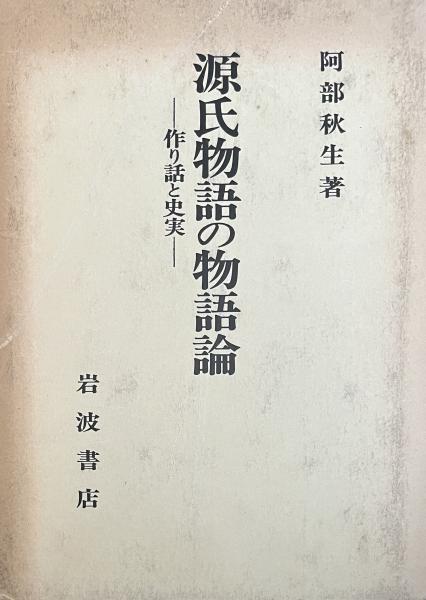 阿部秋生著
源氏物語の物語論
―作り話と史実―
岩波書店